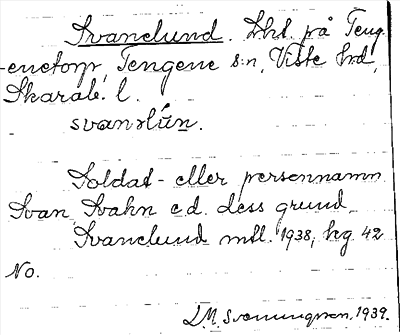 Svanelund. Lht. på Teng-
enetorp, Tengene s:n, Viste hd,
Skarab. l.
svanəlún.
Soldat- eller personnamn
Svan, Svahn e.d. dess grund.
Svanelund mtl. 1938, kg 42
No.
D.M. Svenningsson. 1939.